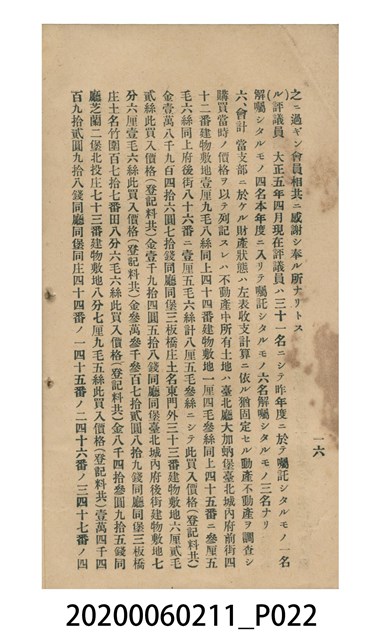 之ニ過ギン會員相共ニ感謝シ奉ル所ナリトス
(ル)評議員 大正五年四月現在評議員ハ三十一名ニシテ昨年度ニ於テ囑託シタルモノ一名
解囑シタルモノ四名本年度ニ入リテ囑託シタルモノ六名解囑シタルモノ三名ナリ
六、會計 當支部ニ於ケル財產狀態ハ左表收支計算ニ依ル猶固定セル動產不動產ヲ調査シ
購買當時ノ價格ヲ以テ列記スレハ不動產中所有土地ハ臺北廳大加蚋堡臺北城內府前街四
十二番建物敷地壹厘九毛八絲同上四十四番建物敷地一厘四毛參絲同上四十五番ニ參厘五
毛六絲同上府後街八十六番ニ壹厘五毛六絲計八厘五毛參絲ニシテ此買入價格(登記料共)
金壹萬八千九百四拾六圓七拾錢同廳同堡三板橋庄土名東門外三十三番建物敷地六厘貳毛
貳絲此買入價格(登記料共)金壹千九拾四圓五拾八錢同廳同堡臺北城內府後街建物敷地七
分六厘壹毛六絲此買入價格(登記料共)金參萬參千參百七拾貳圓八拾九錢同廳同堡三板橋
庄土名竹圍百七拾七番田八分六毛六絲此買入價格(登記料共)金八千四拾參圓九拾五錢同
廳芝蘭二堡北投庄七十三番建物敷地八分七厘九毛五絲此買入價格(登記料共)壹萬四千四
百九拾貳圓九拾八錢同廳同堡同庄四十四番ノ一四十五番ノ二四十六番ノ三四十七番ノ四
一六
20200060211_P022